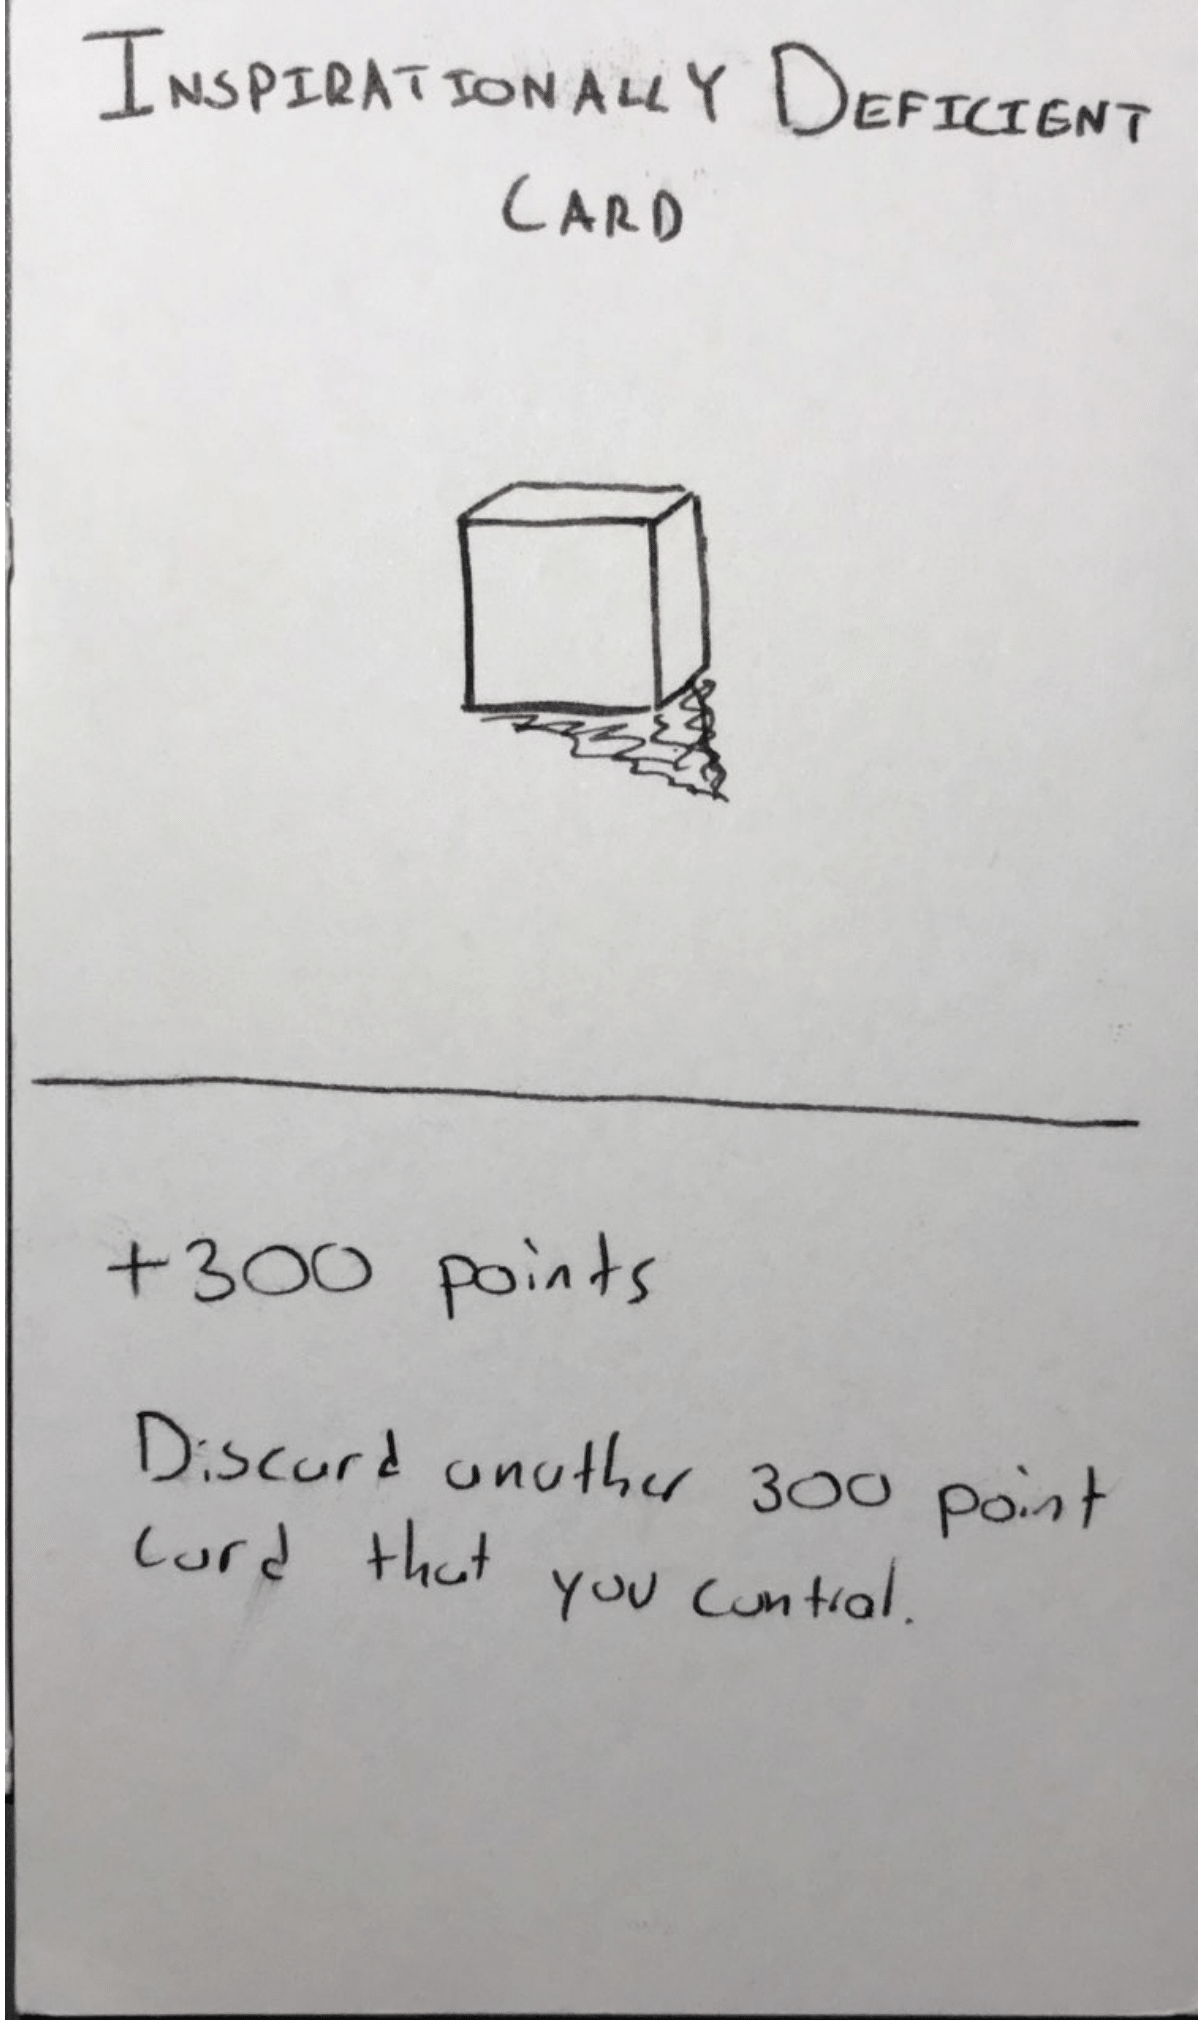 INSPIRATIONALLY DEFICIENT
CARD
+300 points
Discard another 300 point
card that you control.